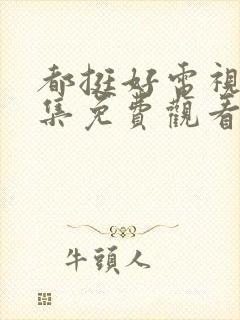 都挺好電視
集免費觀看
牛頭人